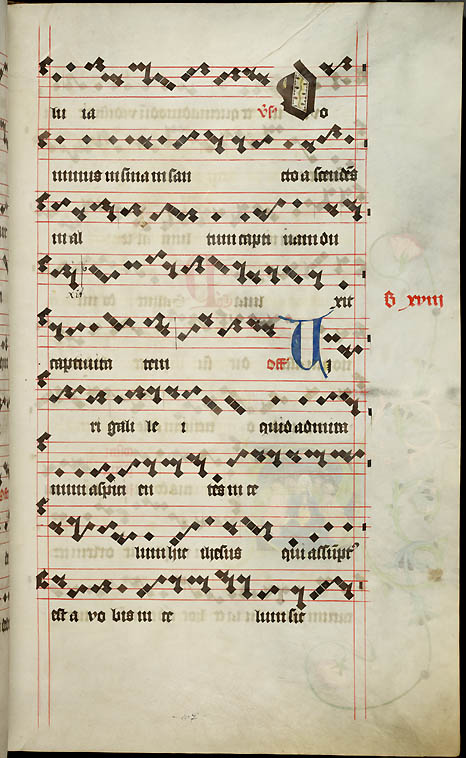 lu ia v̄s Do
minus in sina in san cto a scendēs
in al tum capti uam du
xit
captiuita tem off U i
ri gali le i quid admira
mini aspici en tes in ce
lum hic ihesus qui assūpt᾽
est a vo bis in ce lum sic